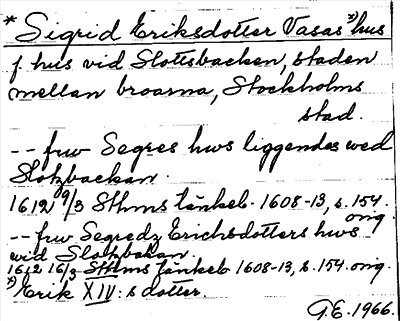 * Sigrid Eriksdotter Vasas *) hus
f. hus vid Slottsbacken, staden
mellan broarna, Stockholms
stad.
-- frw Segres hws liggendes wed
Slotzbackan.
1612 9/3 Sthms tänkeb. 1608-13, s. 154.
orig.
-- frw Segredz Erichsdotters hws
wid Slotzbakan.
1612 16/3 Sthms tänkeb 1608-13, s. 154. orig.
*) Erik XIV:s dotter.
G.E. 1966.